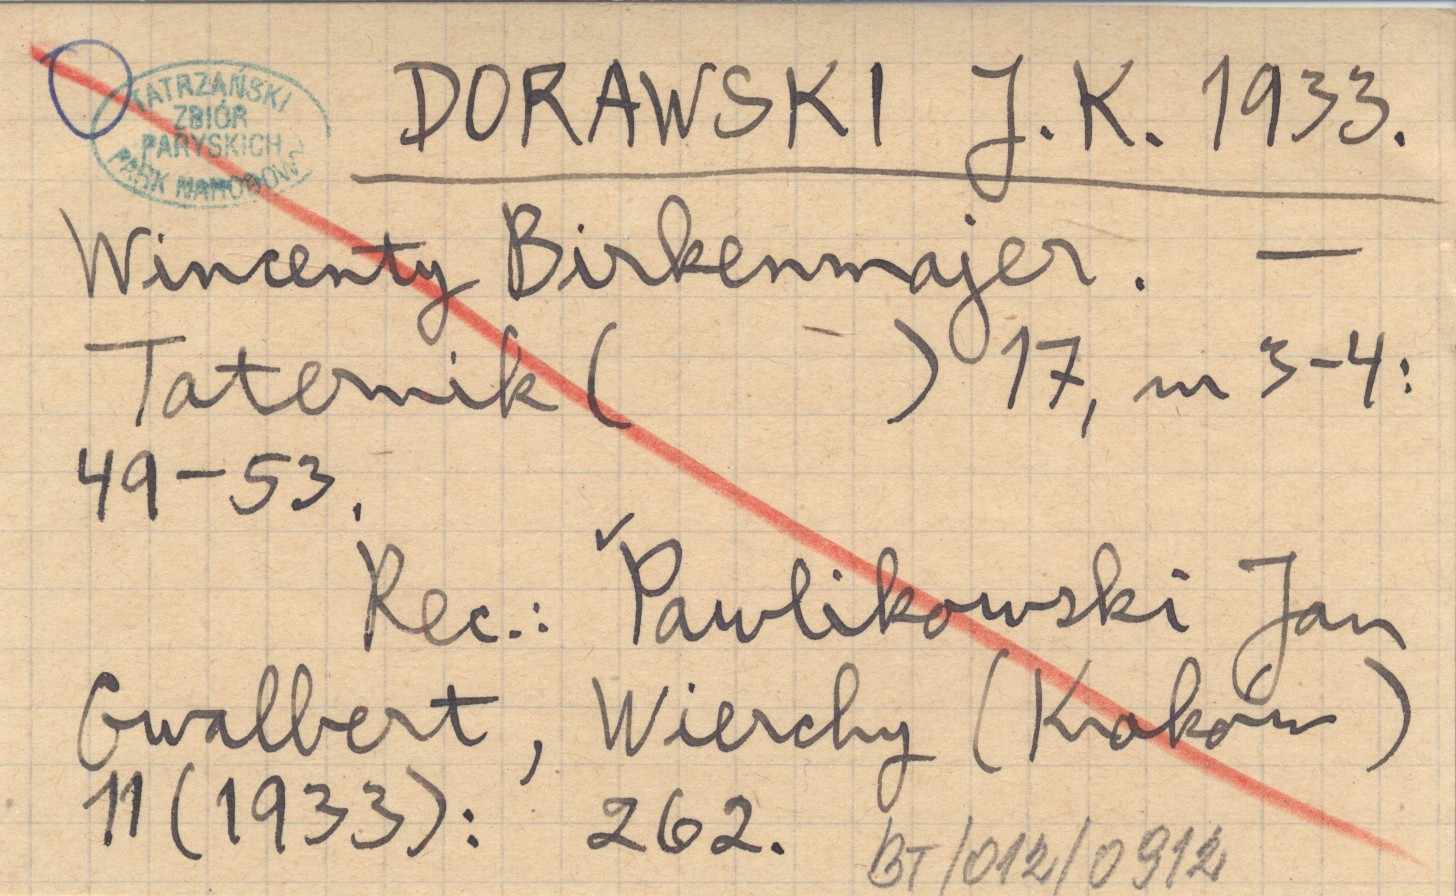 TATRZAŃSKI
ZBIÓR
PARYSKICH
PARK NARODOWY
DORAWSKI J. K. 1933.
Wincenty Birkenmajer. —
Taternik ( ) 17, nr 3-4:
49-53.
Rec.: Pawlikowski Jan
Gwalbert, Wierchy (Kraków)
11 (1933): 262.
BT/012/0912